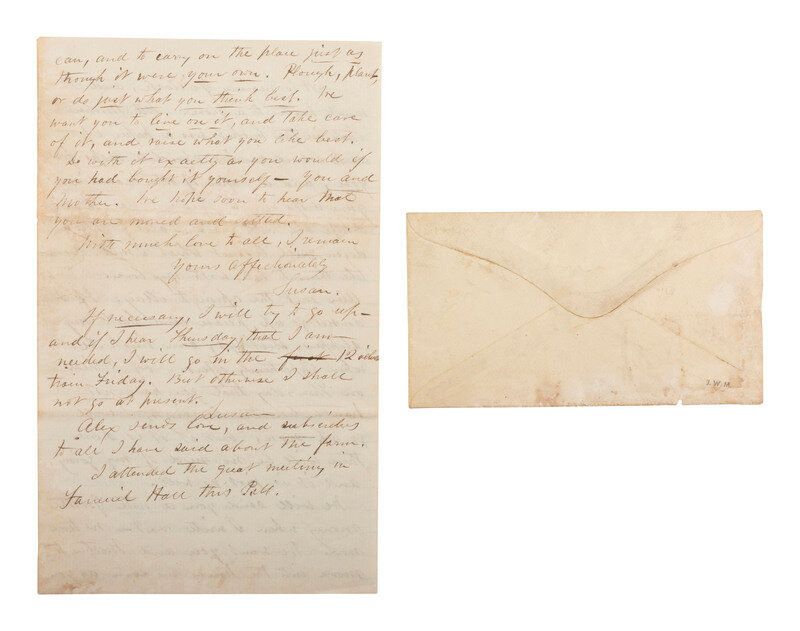 can, and to carry on the place just as
though it were your own. Plough, plant,
or do just what you think best. We
want you to live on it, and take care
of it, and raise what you like best.
Do with it exactly as you would if
you had bought it yourself — You and
Mother. We hope soon to hear that
you are moved and settled.
With much love to all, I remain
Yours affectionately
Susan.
If necessary, I will try to go up —
and if I hear Thursday, that I am
needed, I will go in the 12 o'clock
train Friday. But otherwise I shall
not go at present.
Susan
Alex sends love, and subscribes
to all I have said about the farm.
I attended the great meeting in
Faneuil Hall this P.M.
J. W. M.